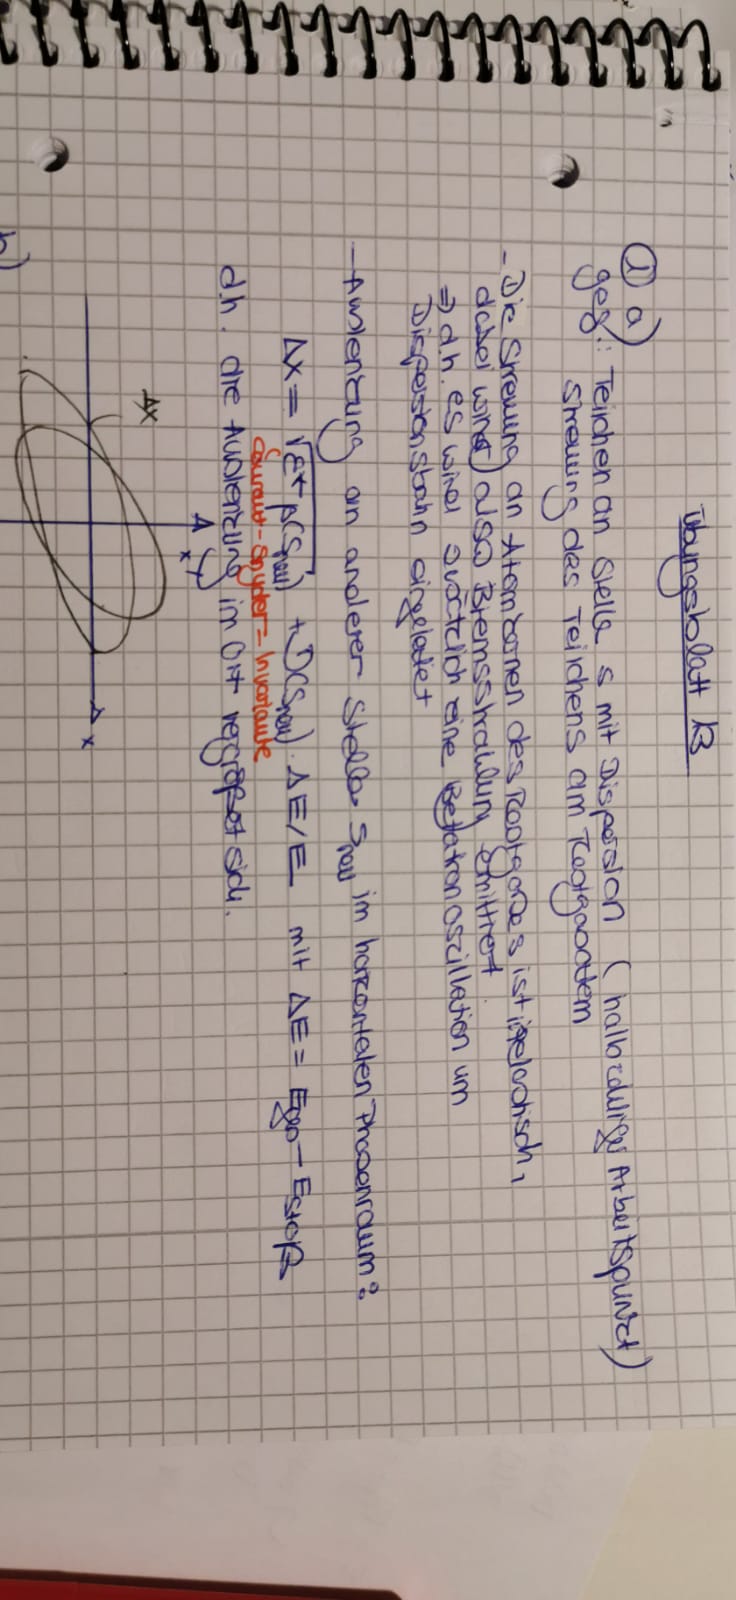 Übungsblatt 13
① a)
geg.: Teilchen an Stelle s mit Dispersion (halbzahliger Arbeitspunkt)
Streuung des Teilchens am Restgasatom
- Die Streuung an Atomkernen des Restgases ist inelastisch,
dabei wird also Bremsstrahlung emittiert.
⇒ d.h. es wird zusätzlich eine Betatronoszillation um
Dispersionsbahn eingeleitet
- Auslenkung an anderer Stelle s_neu im horizontalen Phasenraum:
Δx = √(ε* β(s_neu)) + D(s_neu) · ΔE/E mit ΔE = E_ego - E_Stoß
Courant-Snyder = Invariante
d.h. die Auslenkung im Ort vergrößert sich.
x'
Δx
x
b)